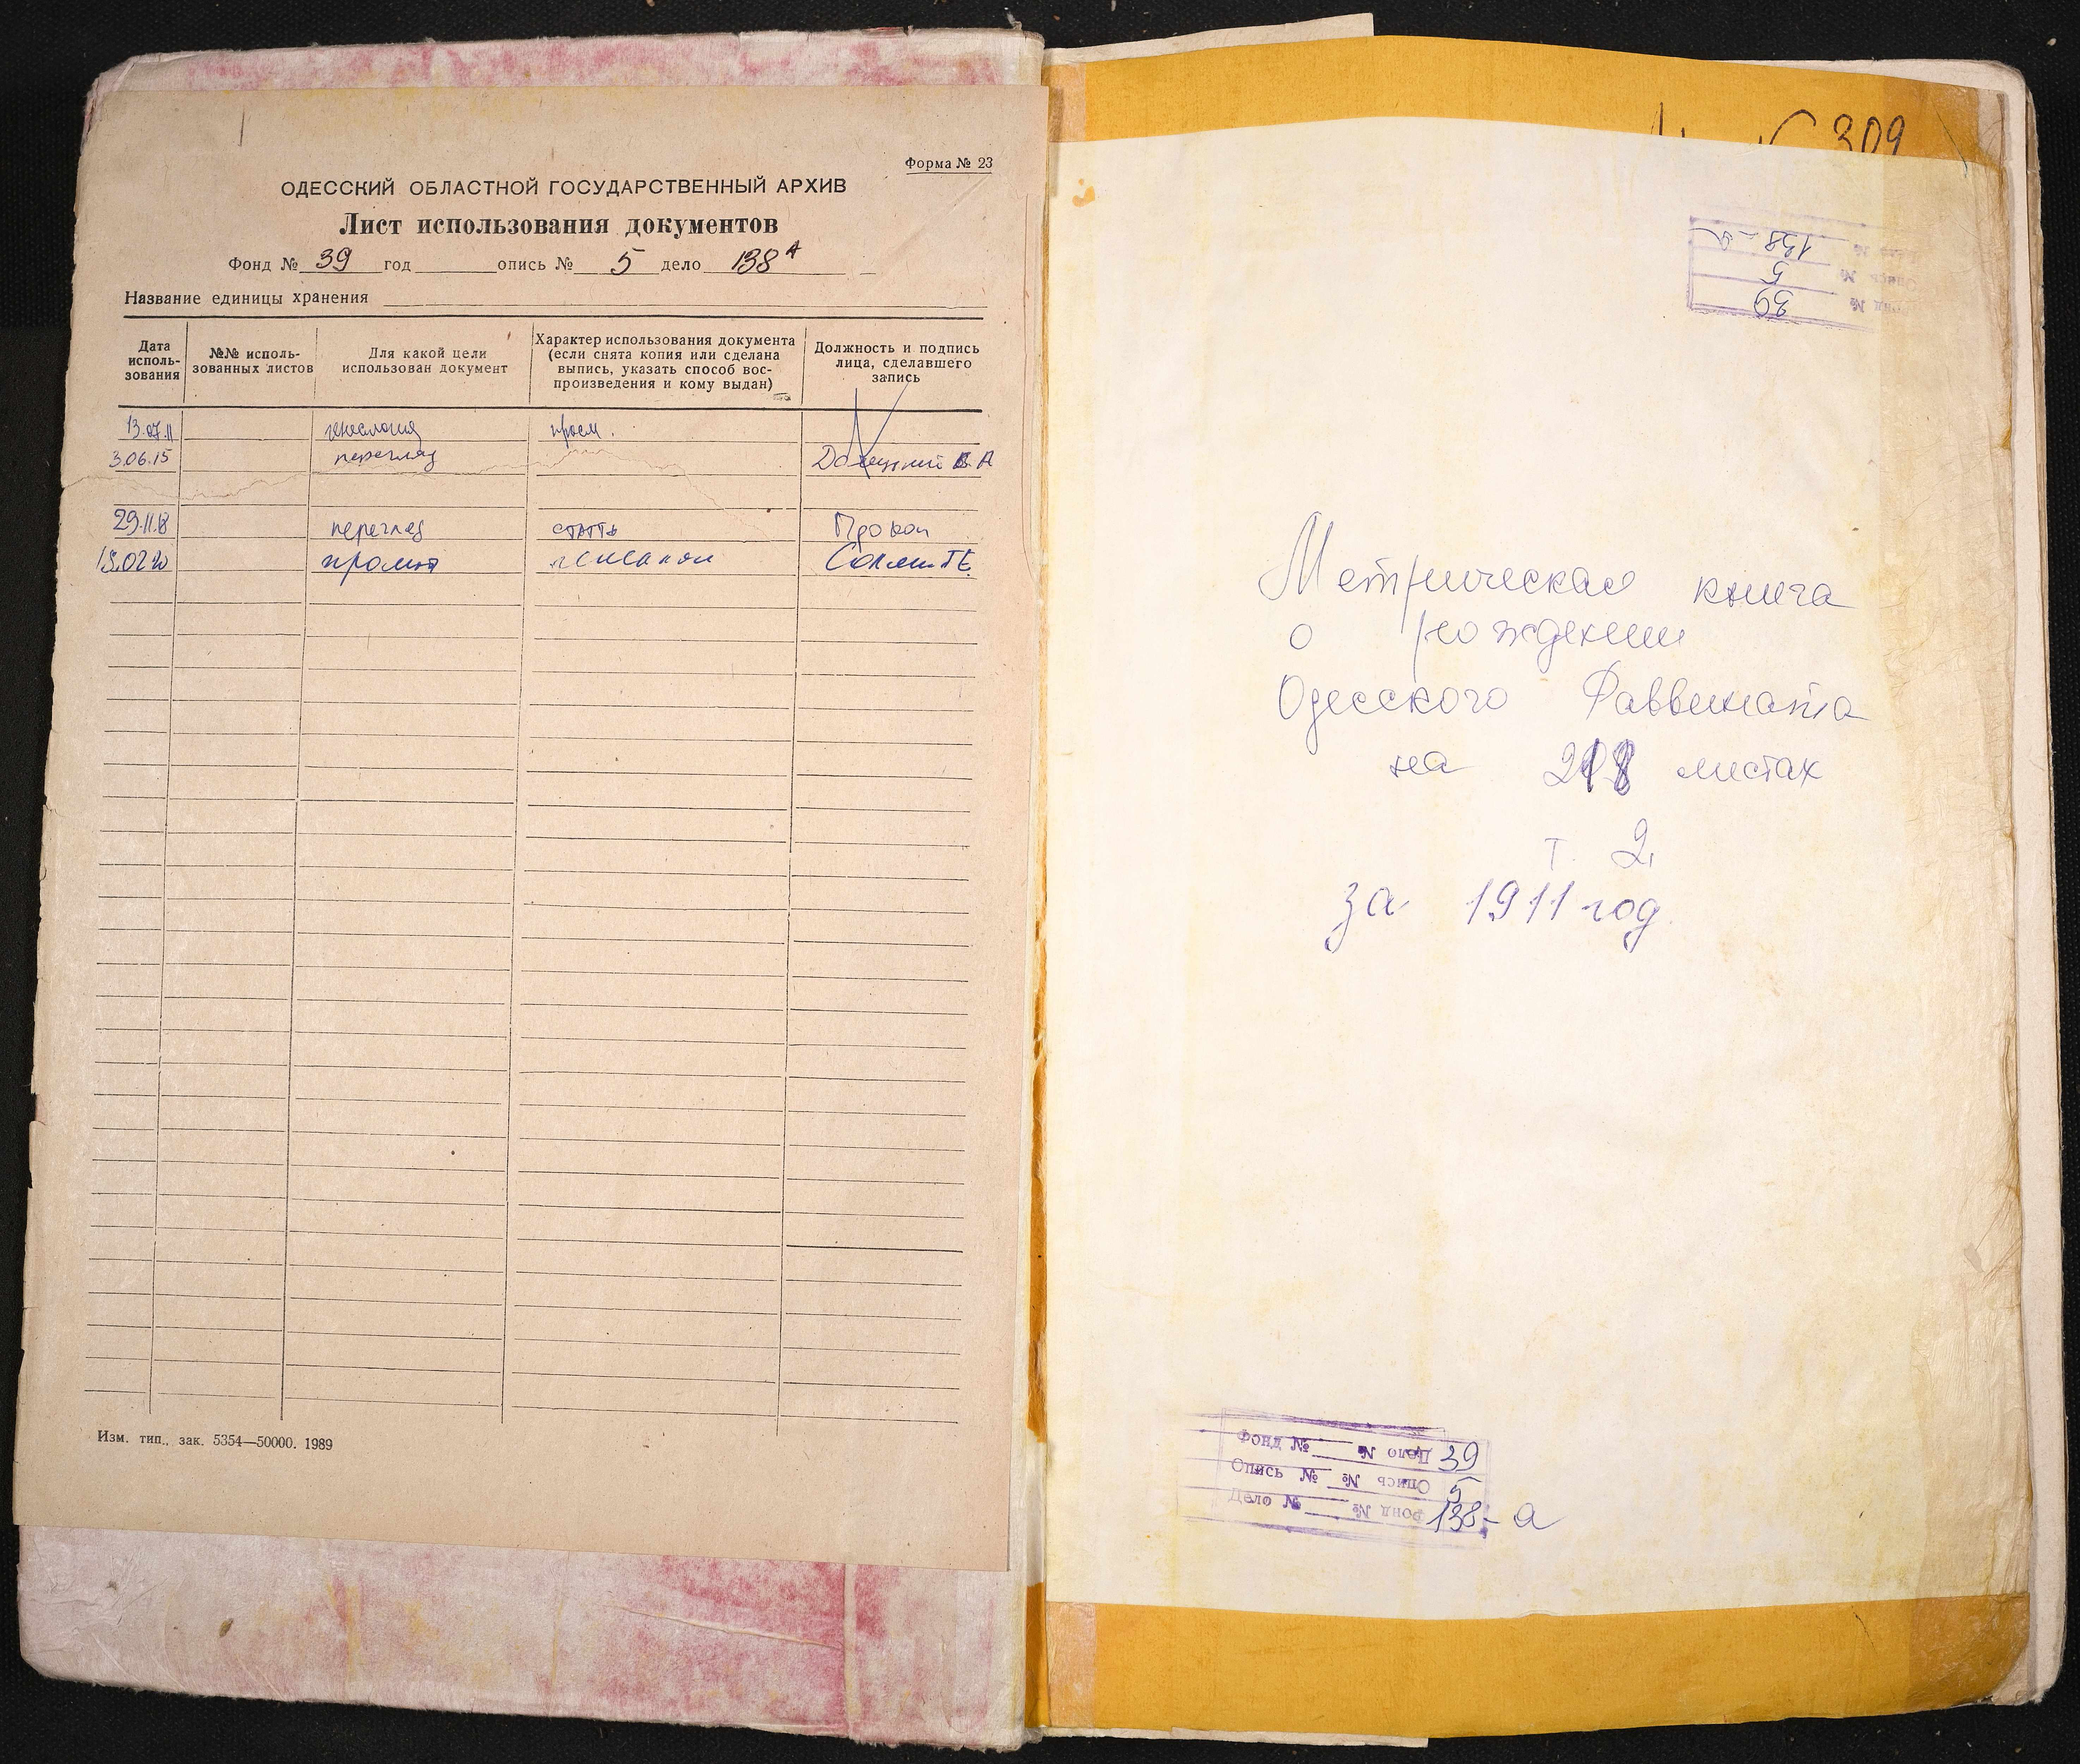 Форма № 23
ОДЕССКИЙ ОБЛАСТНОЙ ГОСУДАРСТВЕННЫЙ АРХИВ
Лист использования документов
Фонд № 39 год опись № 5 дело 138 А
Название единицы хранения
Дата исполь-зования
№№ исполь-зованных листов
Для какой цели использован документ
Характер использования документа (если снята копия или сделана выпись, указать способ вос-произведения и кому выдан)
Должность и подпись лица, сделавшего запись
13.07.11 генеалогия просм.
3.06.15 перегляд
29.11.18 перегляд стаття
Изм. тип., зак. 5354—50000. 1989
309
138-а
Опись № 5
Фонд № 39
Метрическая книга
о рождении
Одесского Раввината
на 218 листах
т. 2
за 1911 год
Фонд № Дело № 39
Опись № Опись № 5
Дело № Фонд № 138-а